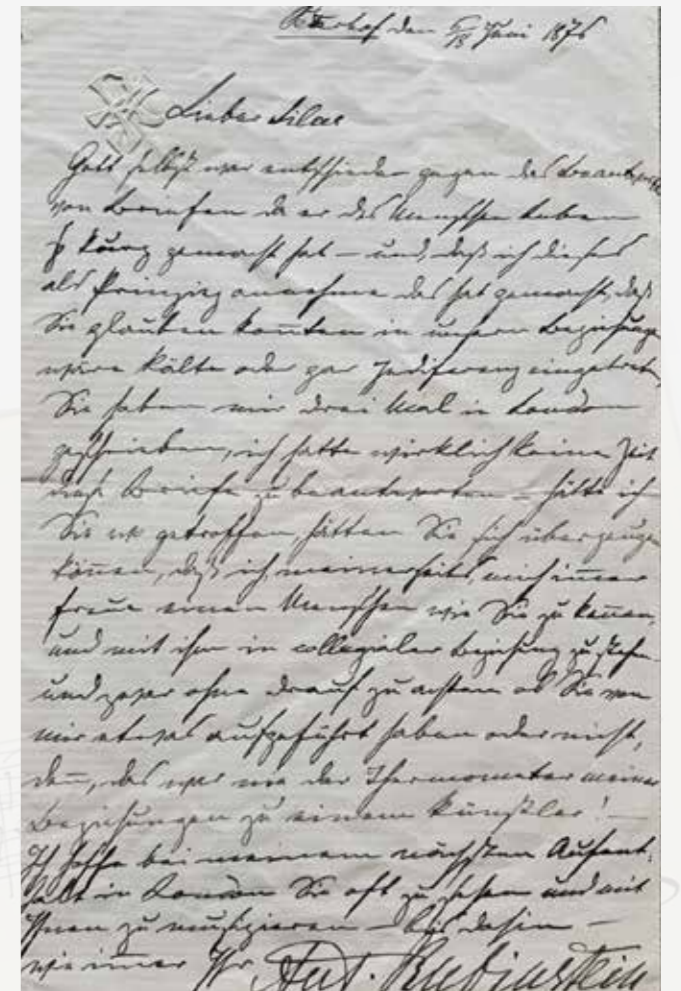 Peterhof den 6/18 Juni 1876
Lieber Silas
Gott selbst war entschieden gegen das Beantworten
von Briefen da er das Menschen Leben
so kurz gemacht hat – und, daß ich dieses
als Prinzip annehme das hat gemacht, daß
Sie glauben konnten in unsern Beziehungen
wäre Kälte oder gar Indiferenz eingetreten,
Sie haben mir drei Mal in London
geschrieben, ich hatte wirklich keine Zeit
Briefe zu beantworten – hätte ich
Sie wo getroffen, hätten Sie sich überzeugen
können, daß ich meinerseits mich immer
freue einen Menschen wie Sie zu kennen,
und mit ihm in collegialer Beziehung zu stehen
und zwar ohne drauf zu achten ob Sie von
mir etwas aufgeführt haben oder nicht,
denn, das war nie der Thermometer meiner
Beziehungen zu einem Künstler! –
Ich hoffe bei meinem nächsten Aufent-
halt in London Sie oft zu sehen und mit
Ihnen zu musizieren – bis dahin –
wie immer Ihr Ant. Rubinstein